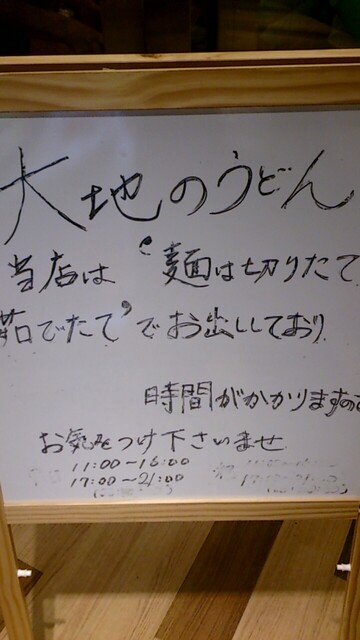 大地のうどん
当店は〝麺は切りたて
茹でたて〟でお出ししており
時間がかかりますので
お気をつけ下さいませ
11:00〜16:00
17:00〜21:00